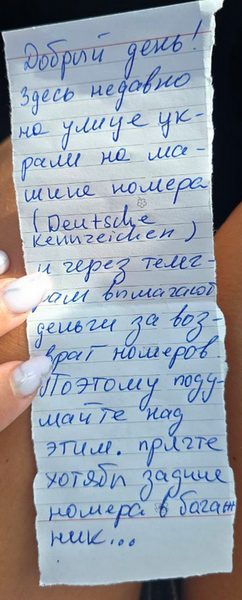 Добрый день!
Здесь недавно
на улице ук-
рали на ма-
шине номера
(Deutsche
Kennzeichen)
и через телег
рам вымагают
деньги за воз-
врат номеров.
Поэтому поду-
майте над
этим. прячте
хотябы задние
номера в багаж
ник...